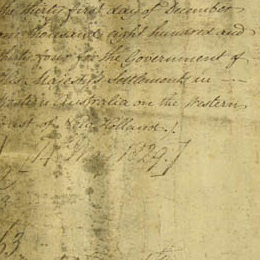 the thirty first day of December
one thousand eight hundred and
thirty four for the Government of
His Majesty's Settlements in
Western Australia on the Western
Coast of New Holland.
1829.
63